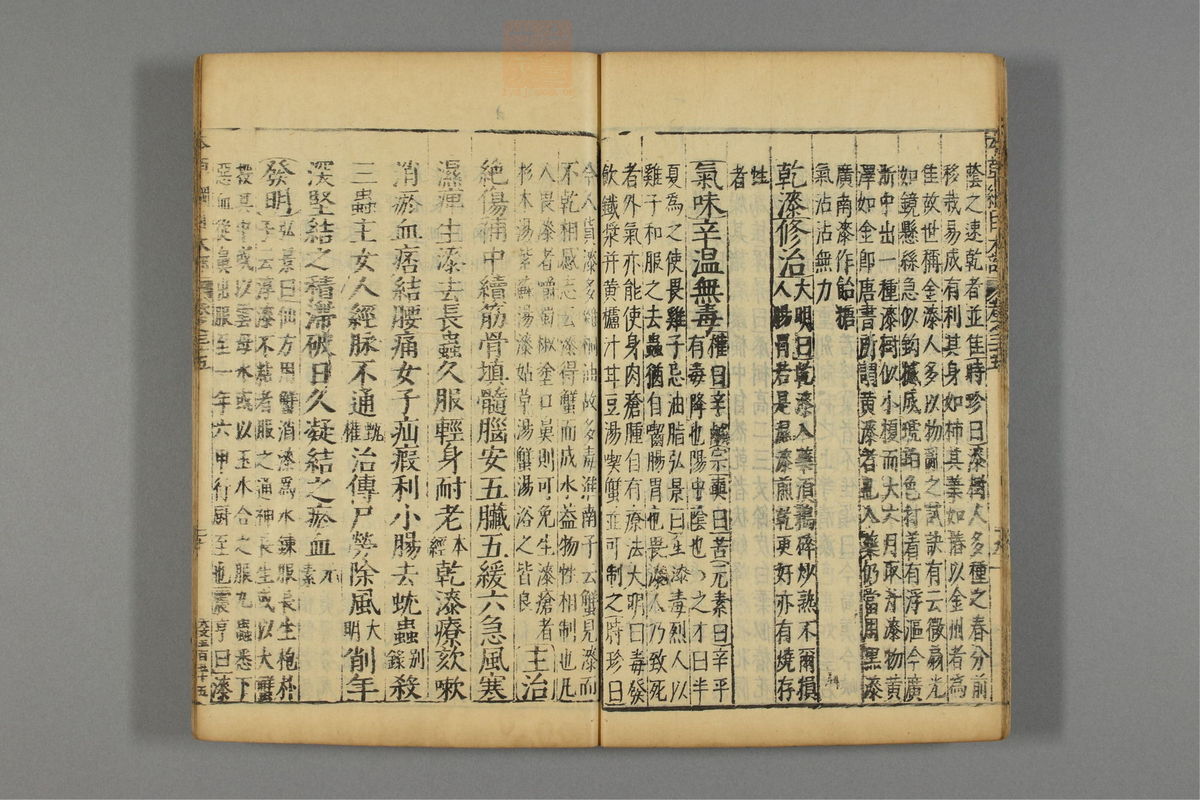 蔭之速乾者並佳時珍曰漆樹人多種之春分前
移栽易成有利其身如柿其葉如椿以金州者爲
佳故世稱金漆人多以物亂之試訣有云微扇光
如鏡懸絲急似鉤撼成琥珀色打着有浮漚今廣
浙中出一種漆樹似小榎而大六月取汁漆物黃
澤如金即唐書所謂黃漆者也入藥仍當用黑漆
廣南漆作飴糖
氣沾沾無力
乾漆修治大明曰乾漆入藥須搗碎炒熟不爾損
人腸胃若是濕漆煎乾更好亦有燒存
性
者
氣味辛温無毒權曰辛鹹宗奭曰苦元素曰辛平
有毒降也陽中陰也之才曰半
夏爲之使畏雞子忌油脂弘景曰生漆毒烈人以
雞子和服之去蟲猶自嚙腸胃也畏漆人乃致死
者外氣亦能使身肉瘡腫自有療法大明曰毒發
飲鐵漿并黃櫨汁甘豆湯喫蟹並可制之時珍曰
今人貨漆多雜桐油故多毒淮南子云蟹見漆而
不乾相感志云漆得蟹而成水蓋物性相制也凡
人畏漆者嚼蜀椒塗口鼻則可免生漆瘡者
杉木湯紫蘇湯漆姑草湯蟹湯浴之皆良主治
絶傷補中續筋骨填髓腦安五臟五緩六急風寒
濕痺生漆去長蟲久服輕身耐老本經乾漆療欬嗽
消瘀血痞結腰痛女子疝瘕利小腸去蚘蟲別錄殺
三蟲主女人經脉不通甄權治傳尸勞除風大明削年
深堅結之積滯破日久凝結之瘀血元素
發明弘景曰仙方用蟹消漆爲水鍊服長生抱朴
子云淳漆不粘者服之通神長生或以大蟹
投其中或以雲母水或以玉水合之服九蟲悉下
惡血從鼻出服至一年六甲行厨至也震亨曰漆